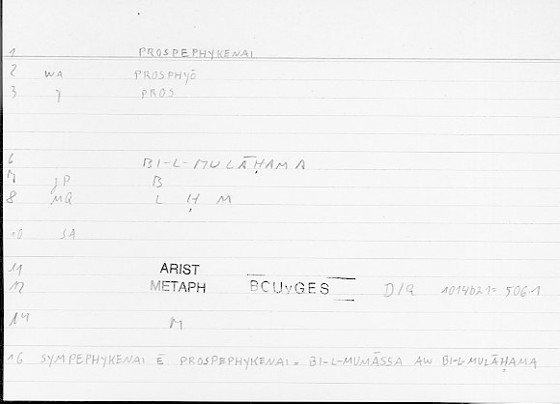 1 PROSPEPHYKENAI
2 WA PROSPHYŌ
3 7 PROS
6 BI-L-MULĀḤAMA
7 JP B
8 MQ L Ḥ M
10 SA
11 ARIST
12 METAPH BCUyGES D/a 1014b21= 506.1
14 M
16 SYMPEPHYKENAI Ē PROSPEPHYKENAI. BI-L-MUMĀSSA AW BI-L-MULĀḤAMA